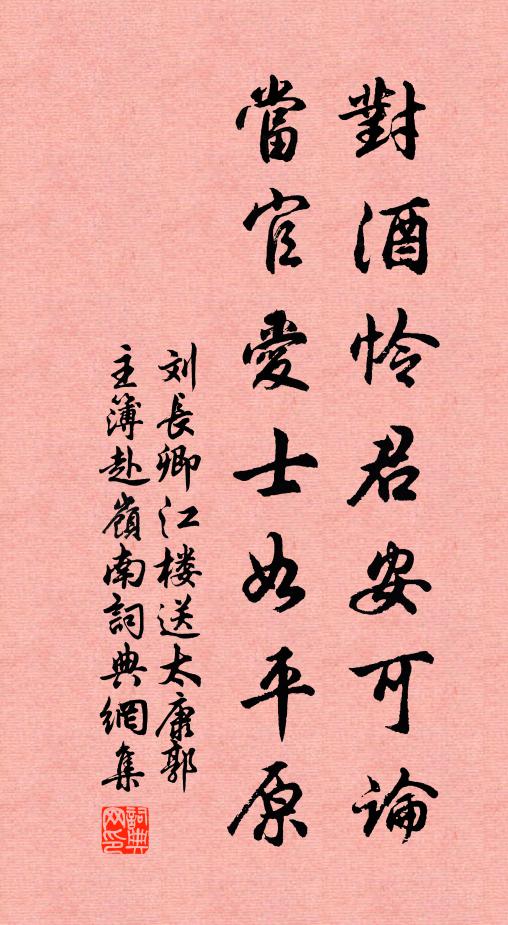 對酒怜君安可論
當官愛士如平原
刘長卿江楼送太康郭
主簿赴嶺南詞典網集
詞典
网印